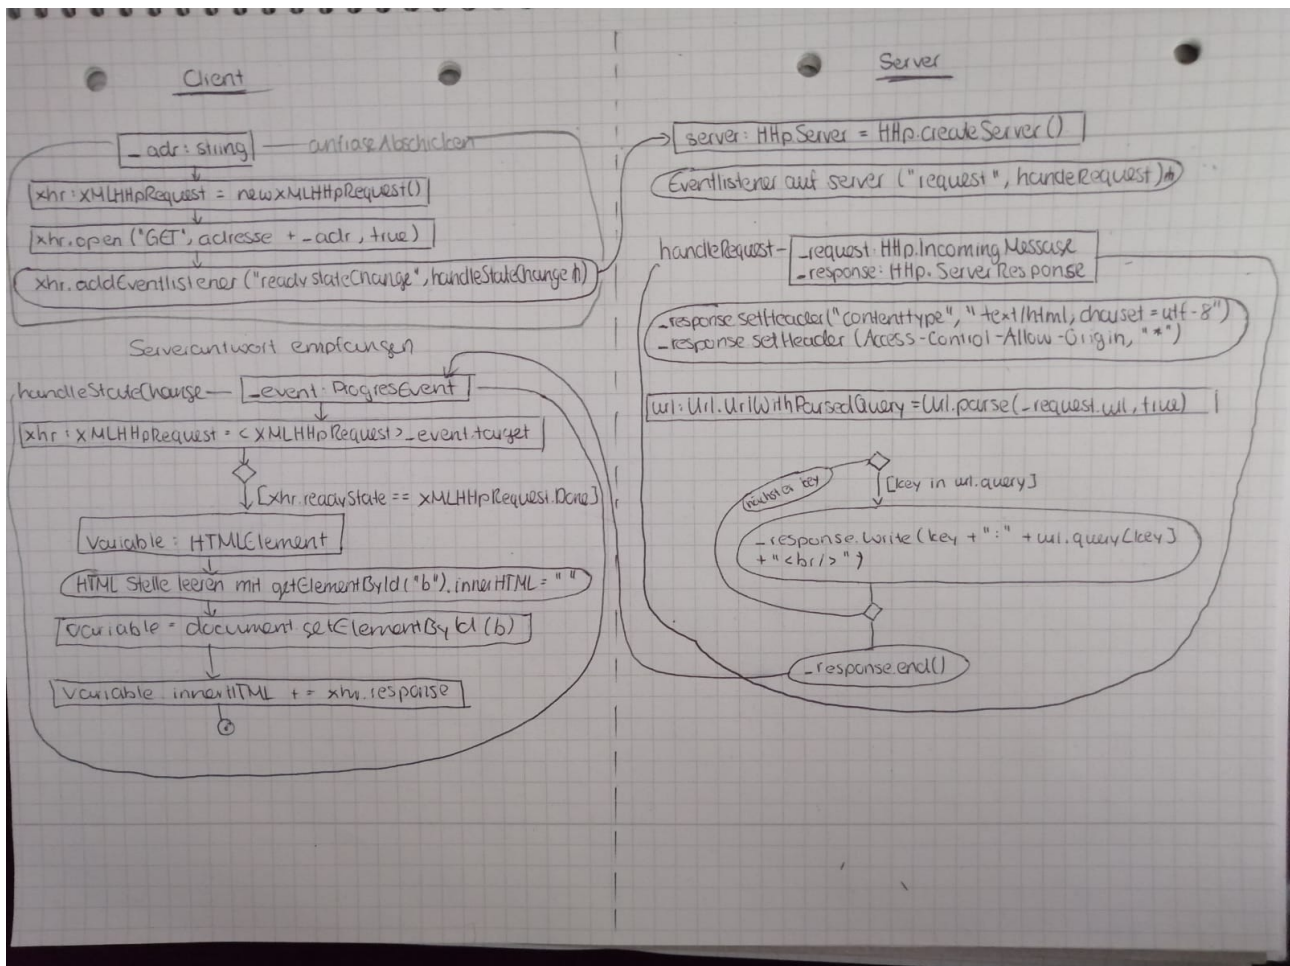 Client
_adr: string
anfrageAbschicken
xhr: XMLHttpRequest = new XMLHttpRequest()
xhr.open ("GET", adresse + _adr, true)
xhr.addEventlistener ("readystateChange", handleStateChange
Serverantwort empfangen
handleStateChange
_event: ProgresEvent
xhr: XMLHttpRequest = <XMLHttpRequest>_event.target
[xhr.readyState == XMLHttpRequest.Done]
Variable: HTMLElement
HTML Stelle leeren mit getElementById("b").innerHTML = " "
variable = document.getElementById(b)
Variable innerHTML += xhr.response
Server
server: Http.Server = Http.createServer()
Eventlistener auf server ("request", handeRequest)
handleRequest
_request: Http.IncomingMessage
_response: Http.ServerResponse
_response.setHeader("contenttype", "text/html, charset=utf-8")
_response setHeader (Access-Control-Allow-Origin, "*")
url: Url.UrlWithParsedQuery = Url.parse(_request.url, true)
nächster key
[key in url.query]
_response.write (key + ":" + url.query[key]
+ "<br/>")
_response.end()